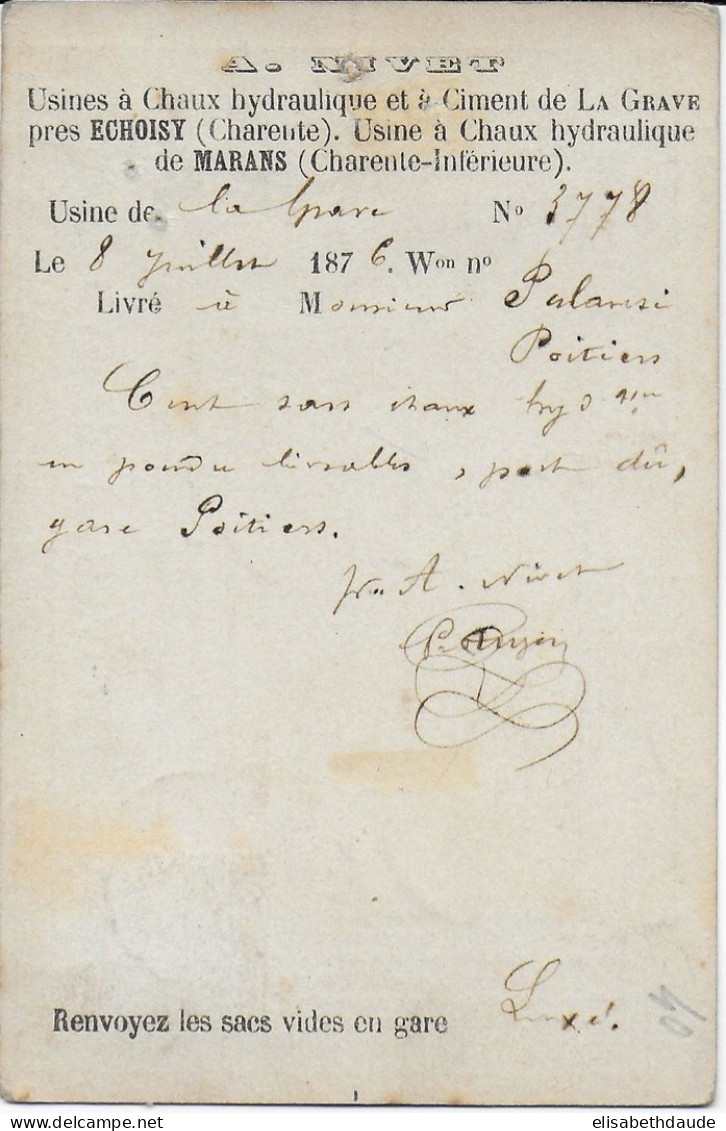 A. NIVET
Usines à Chaux hydraulique et à Ciment de LA GRAVE
pres ECHOISY (Charente). Usine à Chaux hydraulique
de MARANS (Charente-Inférieure).
Usine de la Grave No 3778
Le 8 juillet 1876. Won no
Livré à Monsieur
Poitiers
Cent sacs chaux hyd
en poudre livrables, port dû,
gare Poitiers.
A. Nivet
Renvoyez les sacs vides en gare Luxé.
40
elisabethdaude